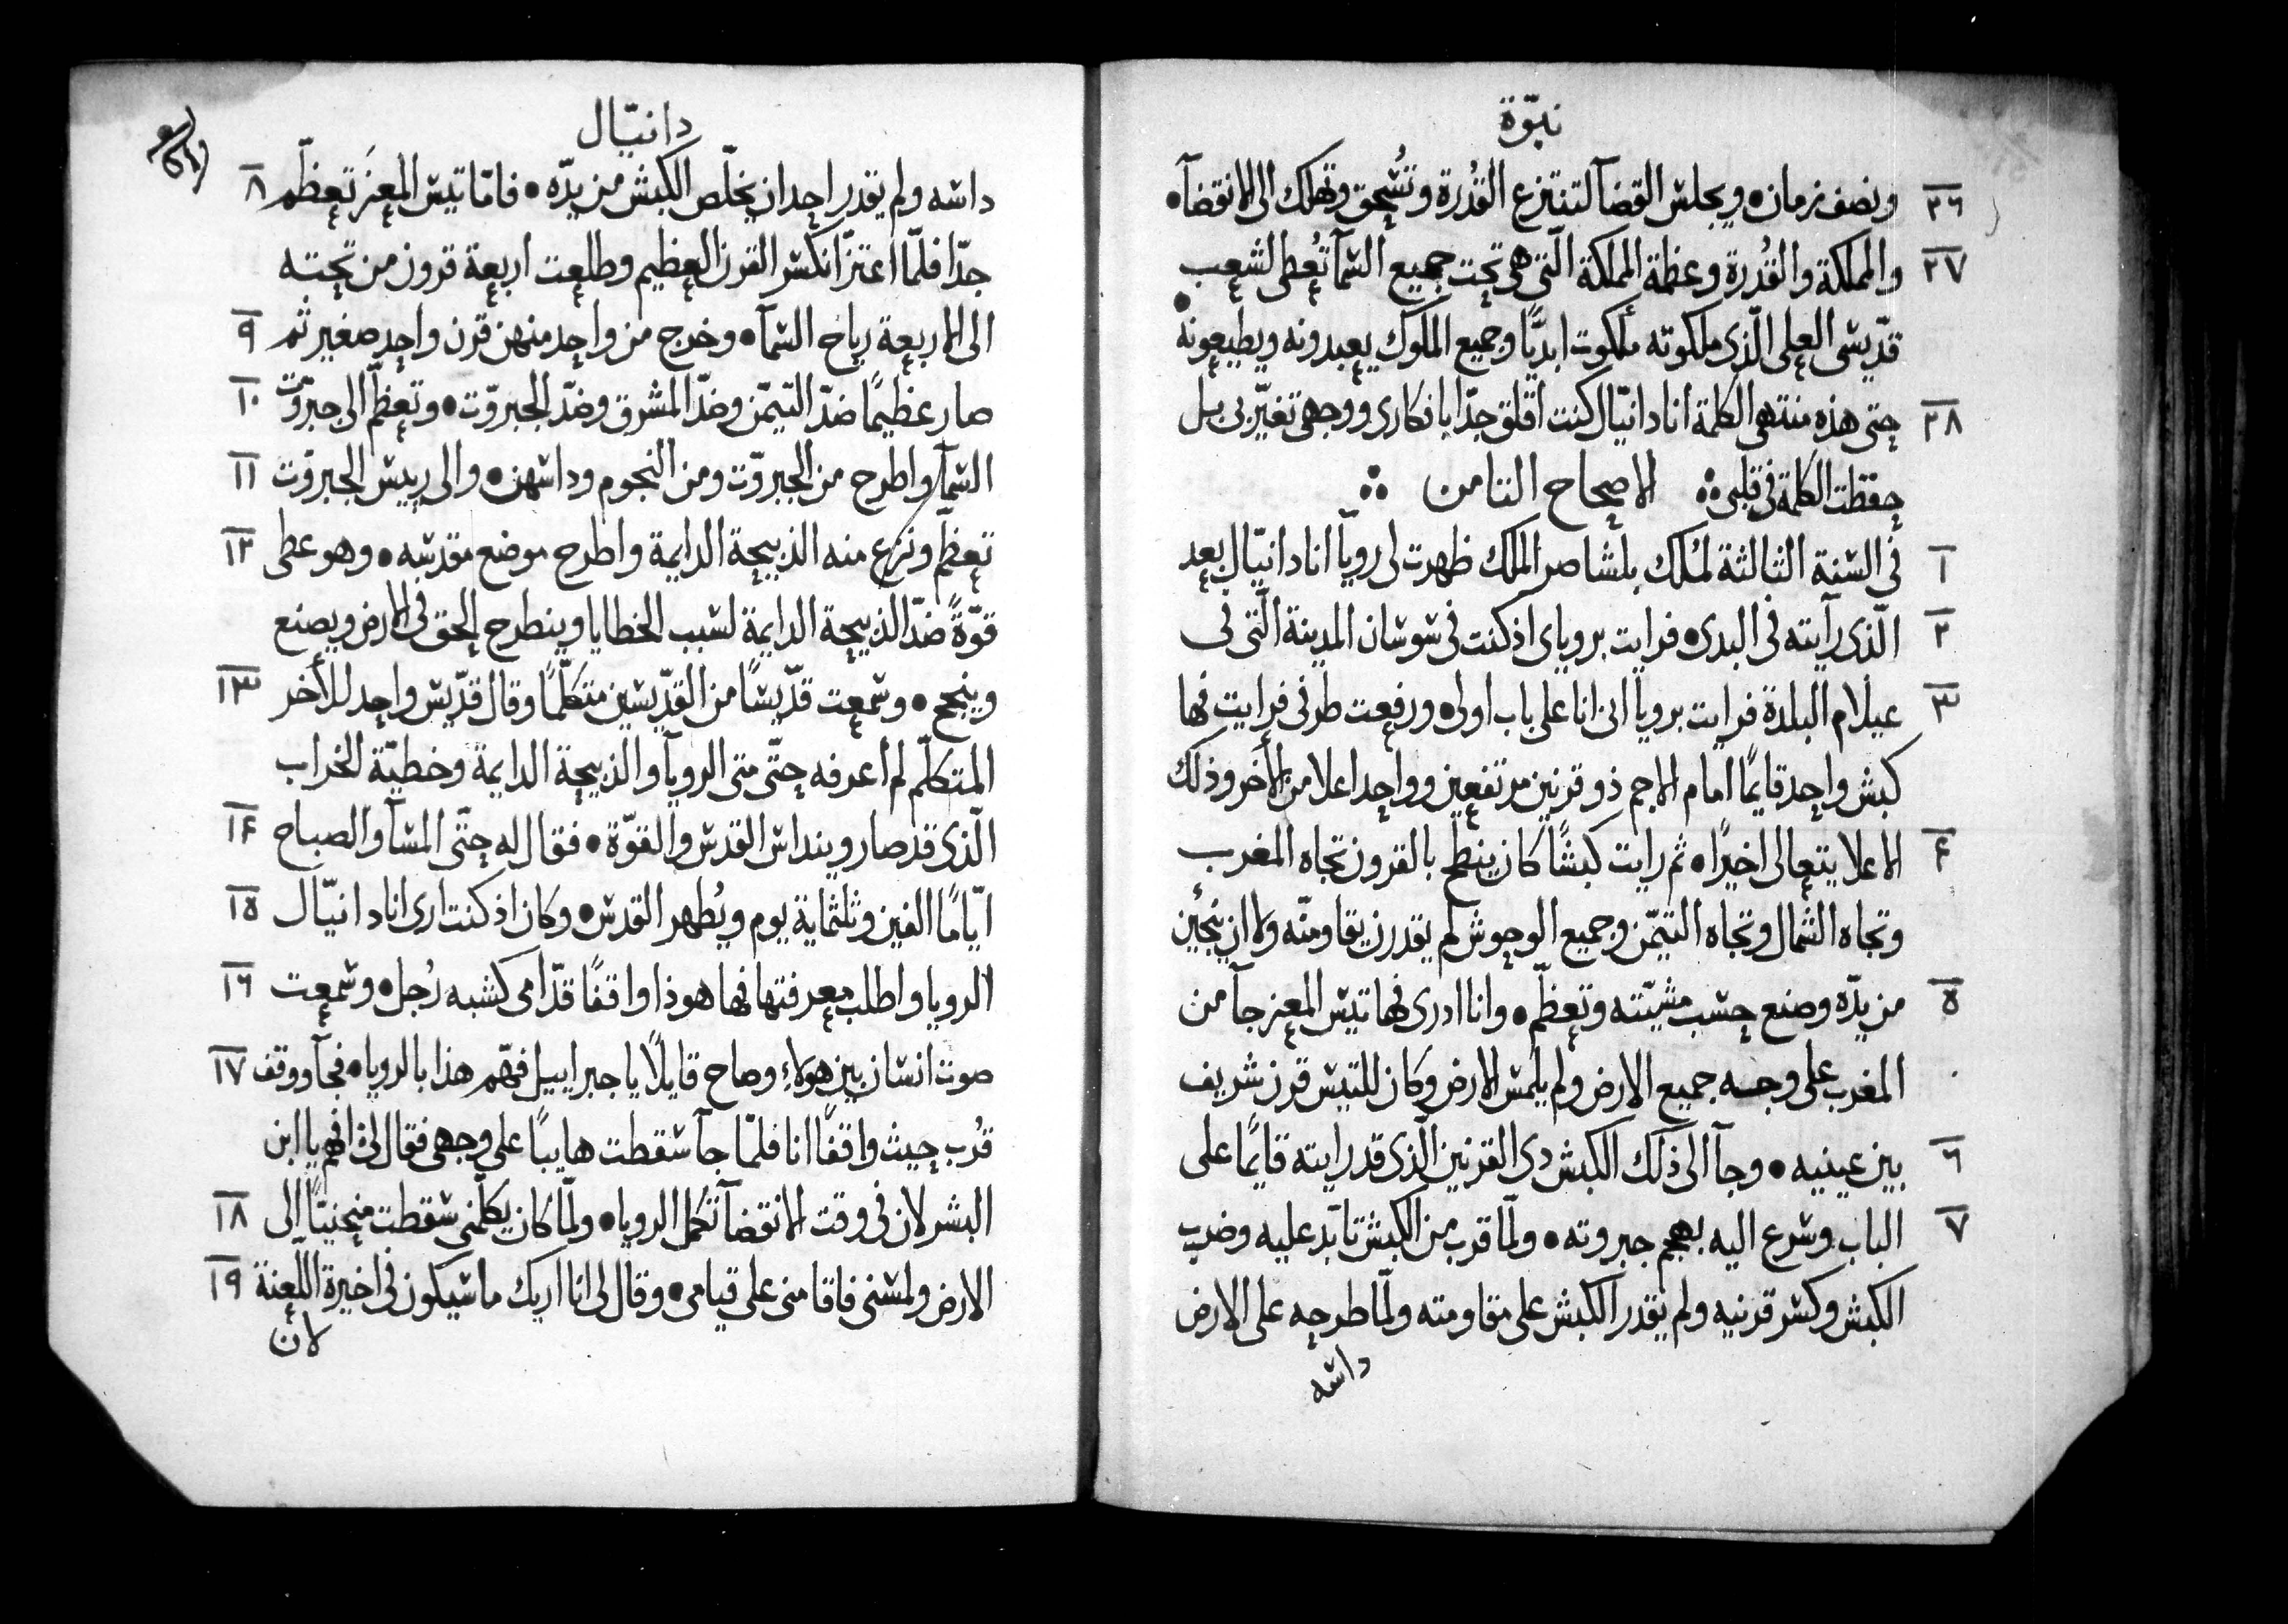 نبوّة
٢٦ ونصف زمان • ويجلس القضآ لتنتزع القُدرة وتُسحق وتهلك الى الانقضآ •
٢٧ والمملكة والقُدرة وعظمة المملكة الّتي هي تحت جميع السمآ تُعطى لشعب
قدّيسي العلي الّذي ملكوته ملكوت ابديًّا وجميع الملوك يعبدونه ويطيعونه •
٢٨ حتى هذه منتهى الكلمة انا دانيّال كنت اقلق جدًّا بافكاري ووجهي تغيّر بي بل
حفظت الكلمة في قلبي ⁘ الاصحاح الثامن ⁘
١ في السنة الثالثة لمُلك بلشاصر الملك ظهرت لي رويآ انا دانيّال بعد
٢ الّذي رآيته في البدى • فرايت بروياي اذ كنت في شوشان المدينة الّتي في
٣ عيلام البلدة فرايت برويآ اني انا على باب اولى • ورفعت طرفي فرايت فها
كبش واحد قايمًا امام الاجم ذو قرنين مرتفعين وواحد اعلا من الأخر وذلك
٤ الاعلا يتعالى اخيرًا • ثم رايت كبشًا كان ينطح بالقرون تجاه المغرب
وتجاه الشمال وتجاه التيمّن وجميع الوحوش لم يقدرن يقاومنّه ولا ان ينجين
٥ من يدّه وصنع حسب مشيّته وتعظّم • وانا ادري فها تيس المعز جآ من
المغرب على وجه جميع الارض ولم يلمس الارض وكان للتيس قرن شريف
٦ بين عينيه • وجآ الى ذلك الكبش دي القرنين الّذي قد رايته قايمًا على
٧ الباب وشرع اليه بهجم جبروته • ولمّا قرب من الكبش تابّد عليه وضرب
الكبش وكسر قرنيه ولم يقدر الكبش على مقاومته ولمّا طرحه على الارض
داسه
دانيّال
داسه ولم يقدر احد ان يخلّص الكبش من يدّه • فامّا تيس المعز تعظّم ٨
جدًّا فلمّا اعتزّ انكسر القرن العظيم وطلعت اربعة قرون من تحته
الى الاربعة رياح السمآ • وخرج من واحد منهن قرن واحد صغير ثم ٩
صار عظيمًا ضدّ التيمّن وضدّ المشرق وضدّ الجبروّت • وتعظّم الى جبروّت ١٠
السمآ واطرح من الجبروّت ومن النجوم وداسهن • والى رييس الجبروّت ١١
تعظّم ونزع منه الذبيحة الدايمة واطرح موضع مقدسه • وهو عطى ١٢
قوّةً ضدّ الذبيحة الدايمة لسبب الخطايا وينطرح الحق في الارض ويصنع
وينجح • وسمعت قدّيسًا من القدّيسين متكلّمًا وقال قدّيس واحد للأخر ١٣
المتكلّم لم اعرفه حتّى متى الرويآ والذبيحة الدايمة وخطيّة الخراب
الّذي قد صار وينداس القدس والقوّة • فقال له حتّى المسآ والصباح ١٤
ايّامًا الفين وثلثماية يوم ويُطهر القدس • وكان اذ كنت ارى انا دانيّال ١٥
الرويا واطلب معرفتها فها هوذا واقفًا قدّامي كشبه رُجل • وسمعت ١٦
صوت انسان بين هولاءِ وصاح قايلًا يا جبراييل فهّم هذا بالرويا • فجآ ووقف ١٧
قُرب حيث واقفًا انا فلمّا جآ سقطت هايبًا على وجهي فقال لي افهم يا ابن
البشر لان في وقت الانقضآ تكمل الرويا • ولمّا كان يكلّمني سقطت منحنيًّا الى ١٨
الارض ولمسني فاقامني على قيامي • وقال لي انا اريك ما سيكون في اخيرة اللّعنة ١٩
لان